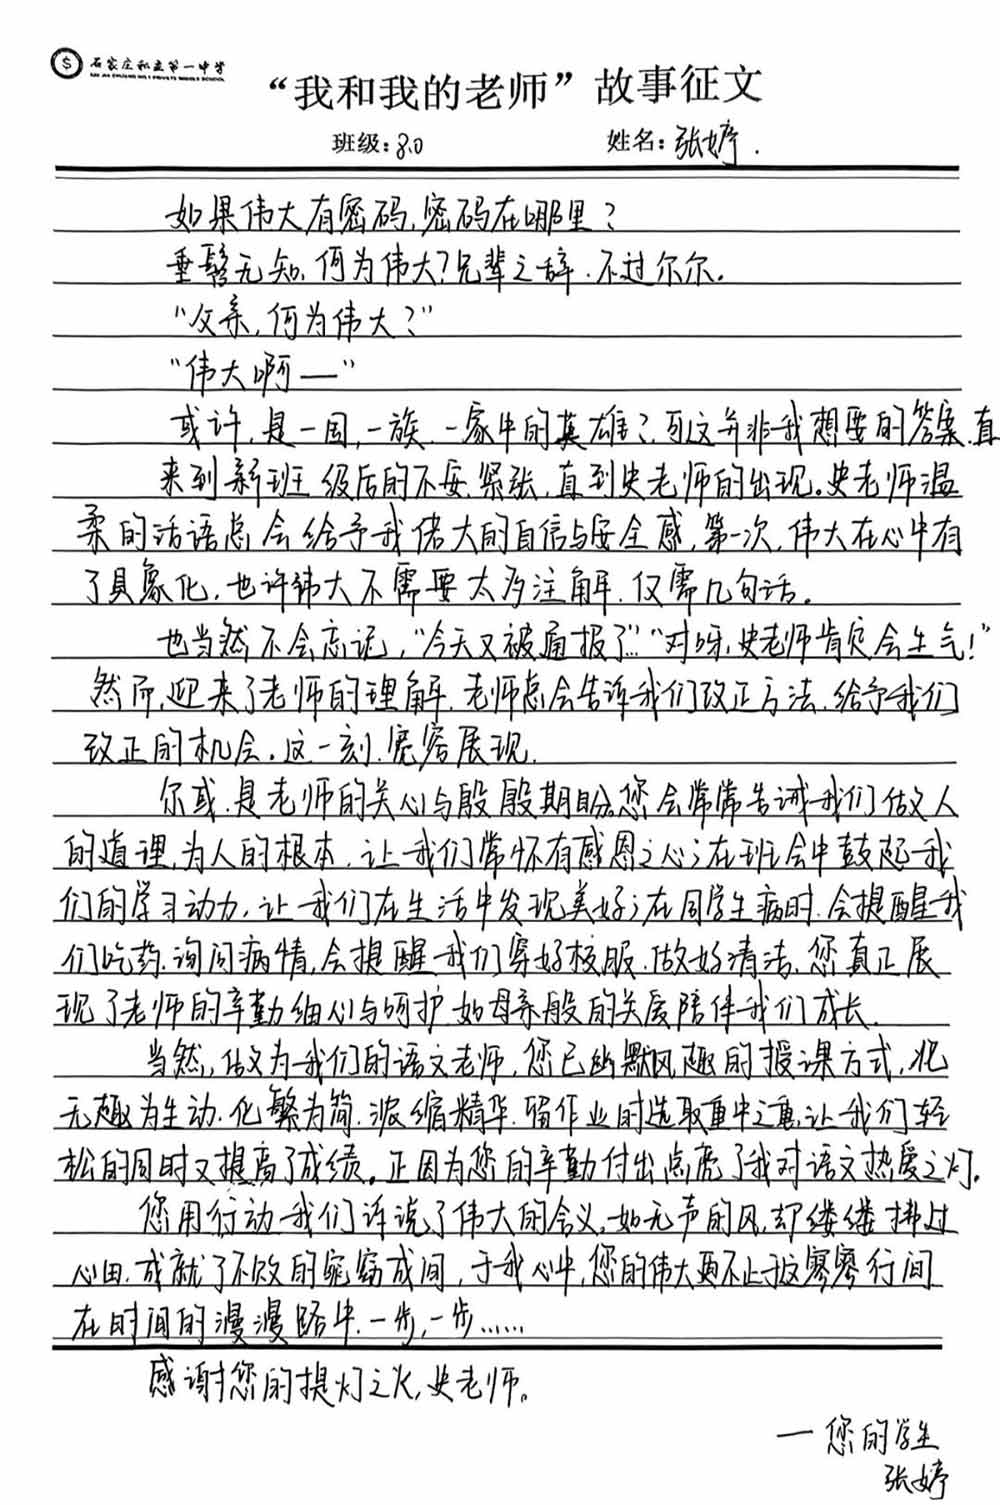 石家庄私立第一中学
“我和我的老师”故事征文
班级：8.0 姓名：张婷.
如果伟大有密码，密码在哪里？
垂髫无知，何为伟大？兄辈之辞，不过尔尔。
“父亲，何为伟大？”
“伟大啊——”
或许，是一国，一族，一家中的英雄？可这并非我想要的答案，直
来到新班级后的不安、紧张，直到史老师的出现。史老师温
柔的话语总会给予我偌大的自信与安全感，第一次，伟大在心中有
了具象化，也许伟大不需要太多注解，仅需几句话。
也当然不会忘记，“今天又被通报了…”“对呀，史老师肯定会生气！”
然而，迎来了老师的理解，老师总会告诉我们改正方法，给予我们
改正的机会。这一刻，宽容展现.
尔或，是老师的关心与殷殷期盼。您会常常告诫我们做人
的道理，为人的根本，让我们常怀有感恩之心；在班会中鼓起我
们的学习动力，让我们在生活中发现美好；在同学生病时，会提醒我
们吃药，询问病情，会提醒我们穿好校服，做好清洁，您真正展
现了老师的辛勤细心与呵护，如母亲般的关爱陪伴我们成长.
当然，做为我们的语文老师，您已幽默风趣的授课方式，化
无趣为生动，化繁为简，浓缩精华，留作业时选取重中之重，让我们轻
松的同时又提高了成绩。正因为您的辛勤付出点亮了我对语文热爱之灯。
您用行动我们诉说了伟大的含义，如无声的风，却缕缕拂过
心田，成就了不败的窈窈成间，于我心中，您的伟大更不止于这寥寥行间
在时间的漫漫路中，一步，一步……
感谢您的提灯之火，史老师。
—您的学生
张婷